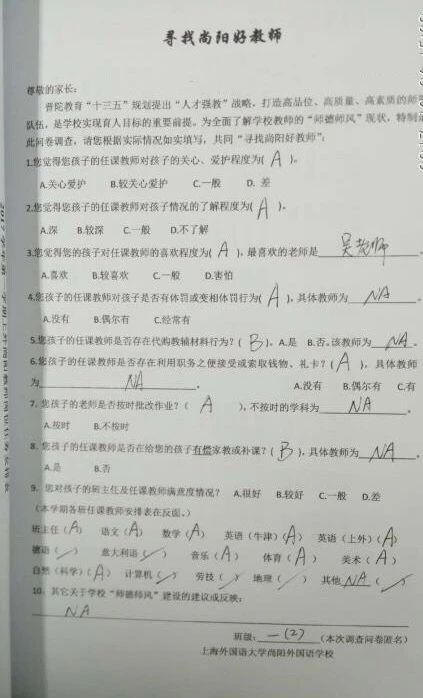 寻找尚阳好教师
尊敬的家长：
普陀教育“十三五”规划提出“人才强教”战略，打造高品位、高质量、高素质的师
队伍，是学校实现育人目标的重要前提。为全面了解学校教师的“师德师风”现状，特制
此问卷调查，请您根据实际情况如实填写，共同“寻找尚阳好教师”：
1.您觉得您孩子的任课教师对孩子的关心、爱护程度为( A )。
A.关心爱护 B.较关心爱护 C.一般 D. 差
2.您觉得您孩子的任课教师对孩子情况的了解程度为( A )。
A.深 B.较深 C.一般 D.不了解
3.您觉得您的孩子对任课教师的喜欢程度为( A )，最喜欢的老师是 吴老师
A.喜欢 B.较喜欢 C.一般 D.害怕
4.您孩子的任课教师对孩子是否有体罚或变相体罚行为( A )，具体教师为 NA 。
A.没有 B.偶尔有 C.经常有
5.您孩子的任课教师是否存在代购教辅材料行为？( B )。A.是 B.否。该教师为 NA 。
6.您孩子的任课教师是否存在利用职务之便接受或索取钱物、礼卡？( A )，具体教师
为 NA 。 A.没有 B.偶尔有 C.有
7. 您孩子的老师是否按时批改作业？( A )，不按时的学科为 NA 。
A.按时 B.不按时
8. 您孩子的任课教师是否在给您的孩子有偿家教或补课？( B )，具体教师为 NA 。
A.是 B.否
9. 您对孩子的班主任及任课教师满意度情况？ A.很好 B.较好 C.一般 D.差
(本学期各班任课教师安排表在反面。)
班主任 (A) 语文 (A) 数学 (A) 英语（牛津）(A) 英语（上外）(A)
德语 ( / ) 意大利语 ( / ) 音乐 (A) 体育 (A) 美术 (A)
自然（科学）(A) 计算机 ( / ) 劳技 ( / ) 地理 ( / ) 其他 NA ( / )
10. 其它关于学校“师德师风”建设的建议或反映：
NA
班级： 一(2) (本次调查问卷匿名)
上海外国语大学尚阳外国语学校